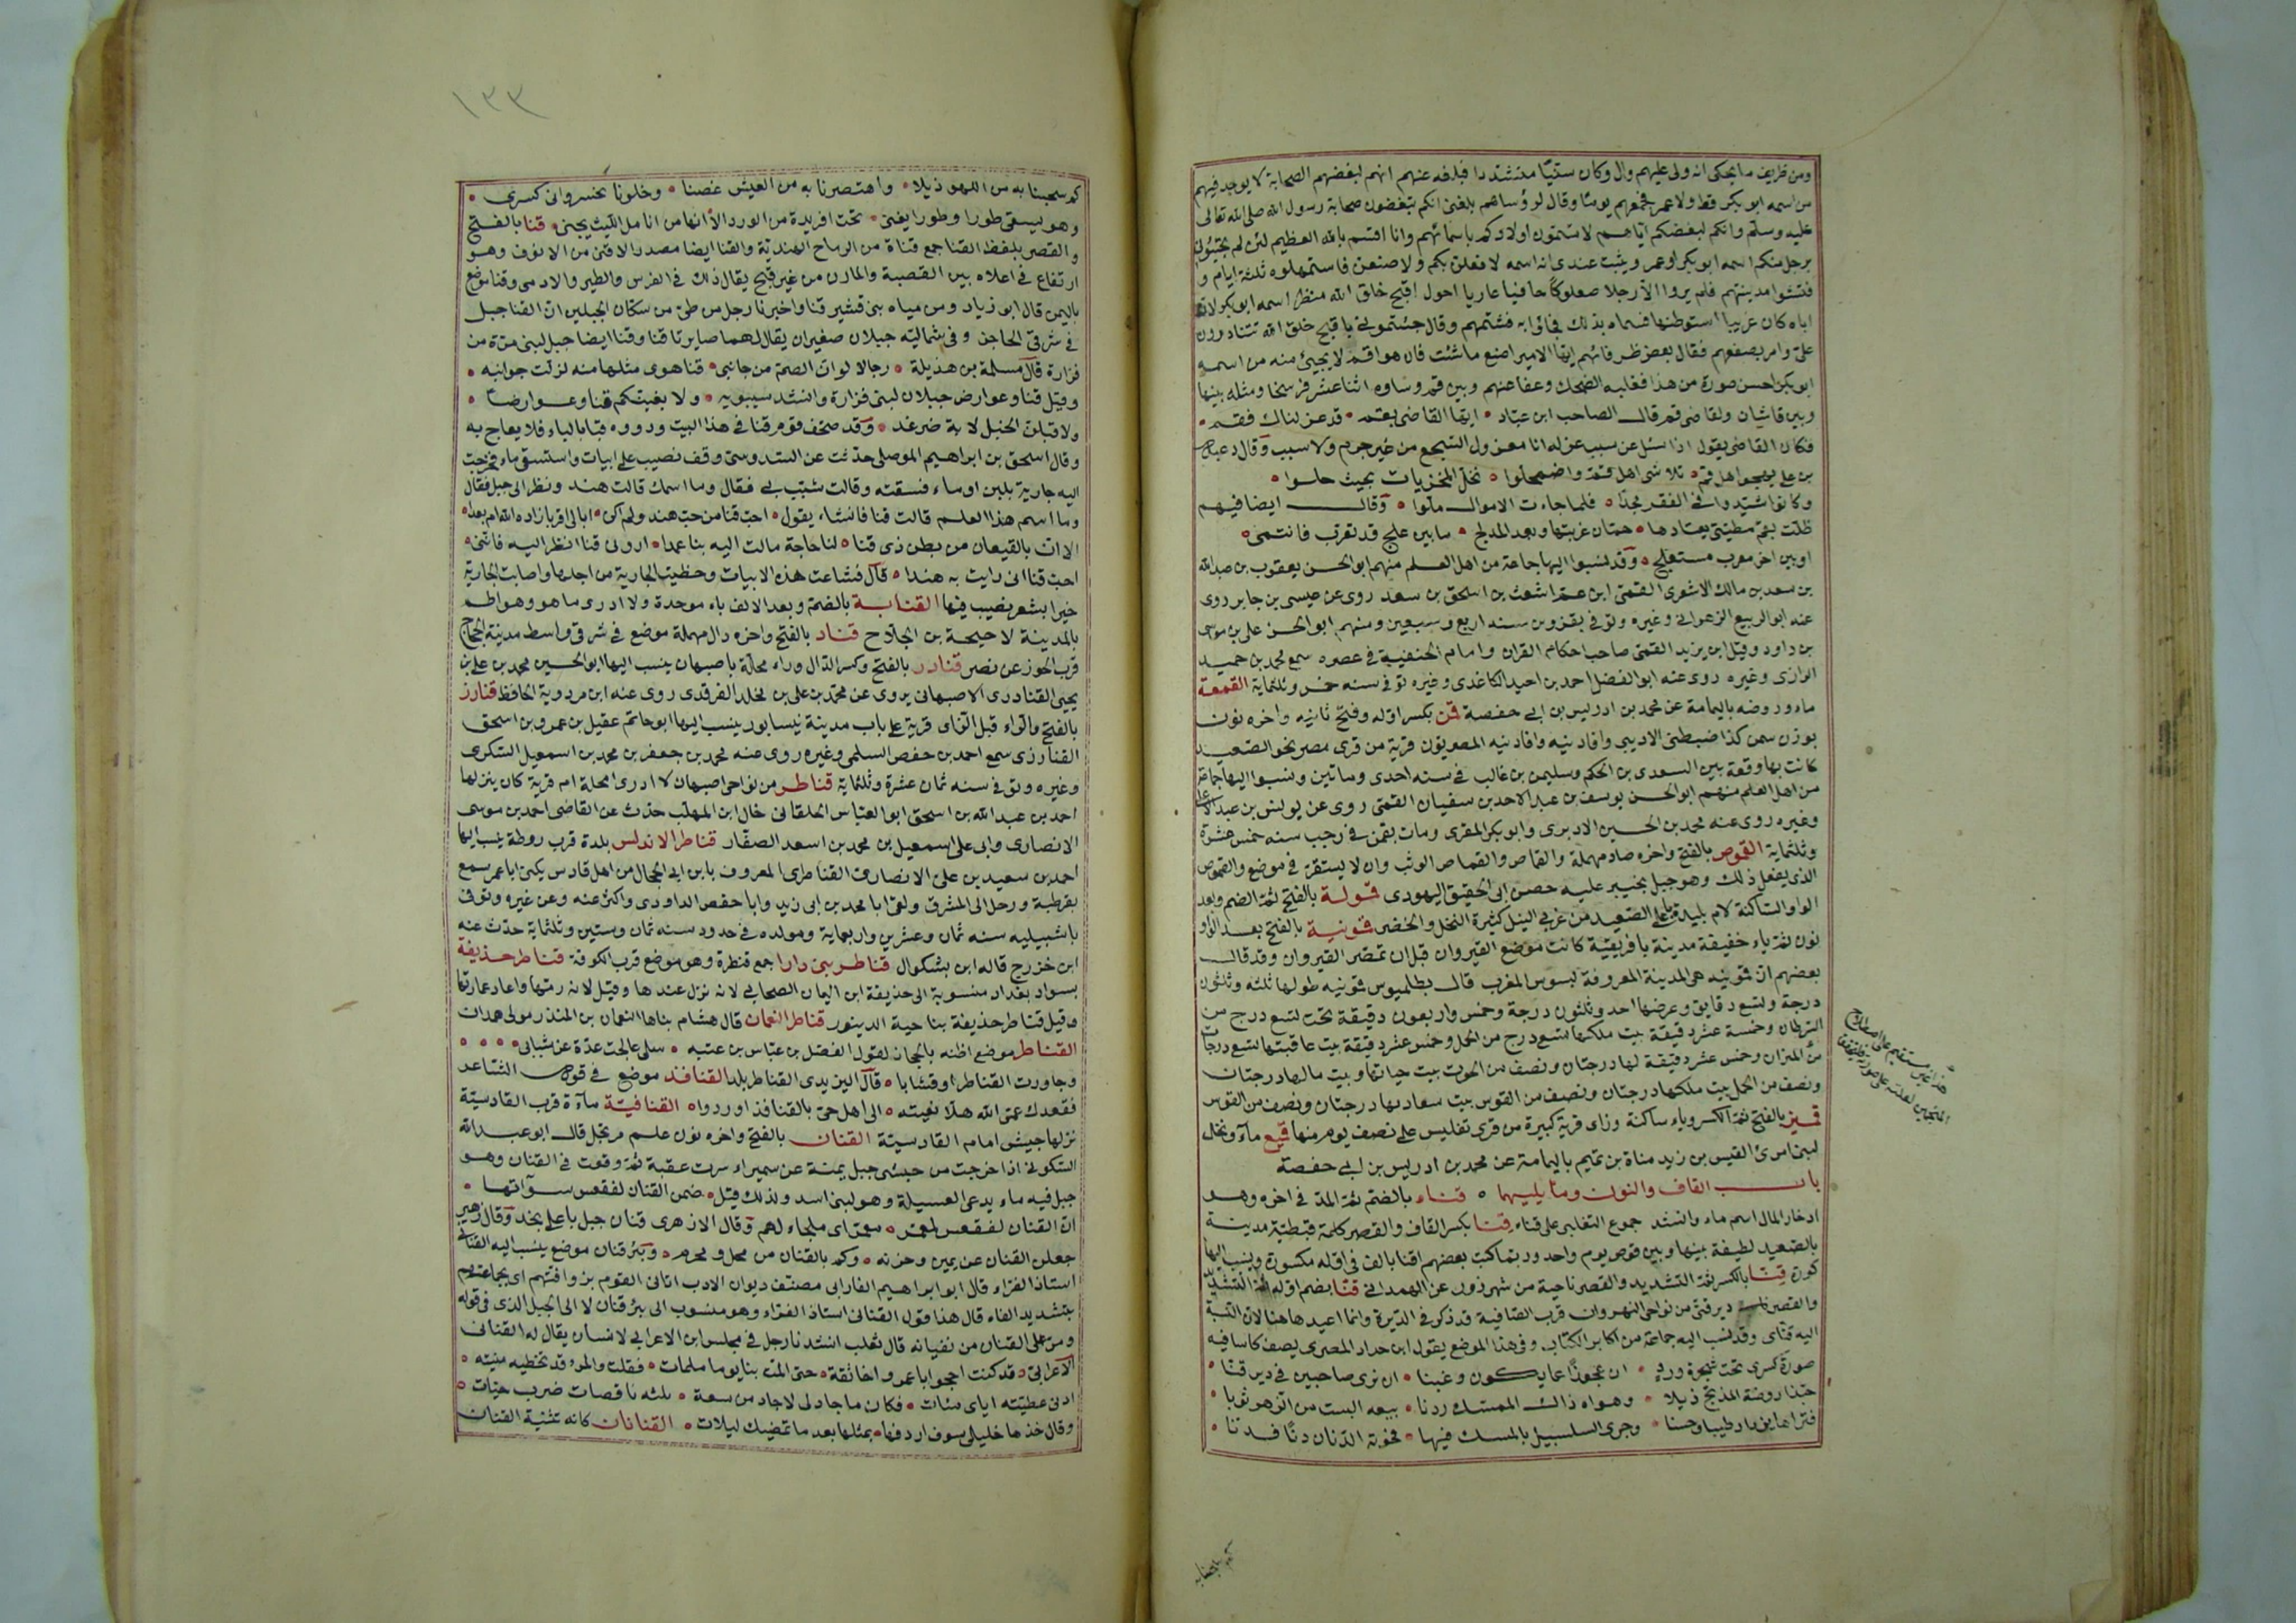 ومن ظريف ما يحكى انه ولى عليهم وال وكان سنيّا متشددا فبلغه عنهم انهم لبغضهم الصحابة لا يوجد فيهم
من اسمه ابو بكر قط ولا عمر فجمعهم يوما وقال لرؤسائهم بلغنى انكم تبغضون صحابة رسول الله صلى الله تعالى
عليه وسلم وانكم لبغضكم اياهم لا تسمون اولادكم باسمائهم وانا اقسم بالله العظيم لئن لم تجيئونى
برجل منكم اسمه ابو بكر او عمر ويثبت عندى انه اسمه لافعلن بكم ولاصنعن فاستمهلوه ثلثة ايام و
فتشوا مدينتهم فلم يروا الا رجلا صعلوكا حافيا عاريا احول اقبح خلق الله منظرا اسمه ابو بكر لان
اباه كان غريبا استوطنها فسماه بذلك فجاؤا به فشتمهم وقال جئتمونى باقبح خلق الله تتنادرون
علىّ وامر بصفعهم فقال بعض ظرفائهم ايها الامير اصنع ما شئت فان هواء قم لا يجيئ منه من اسمه
ابو بكر احسن صورة من هذا فغلبه الضحك وعفا عنهم وبين قم وساوه اثنا عشر فرسخا ومثله بينها
وبين قاشان ولقاضى قم قال الصاحب ابن عباد ايها القاضى بقم قد عزلناك فقم
فكان القاضى يقول اذا سئل عن سبب عزله انا معزول السجع من غير جرم ولا سبب وقال دعبل
بن على يهجوا اهل قم تلاشى اهل قم واضمحلوا تحلّ المخزيات بحيث حلوا
وكانوا شيدوا فى الفقر مجدا فلما جاءت الاموال ملوا وقال ايضا فيهم
ظلت بقم مطيتى يعتادها همّان غربتها وبعد المدلج ما بين علج قد تعرب فانتمى
او بين اخر معرب مستعلج وقد نسبوا اليها جاعة من اهل العلم منهم ابو الحسن يعقوب بن عبد الله
بن سعد بن مالك الاشعرى القمى ابن عم اشعث بن اسحق بن سعد روى عن عيسى بن جابر روى
عنه ابو الربيع الزهرانى وغيره وتوفى بقزوين سنه اربع وسبعين ومنهم ابو الحسن على بن موسى
بن داود وقيل ابن يزيد القمى صاحب احكام القران وامام الحنفية فى عصره سمع محمد بن حميد
الرازى وغيره روى عنه ابو الفضل احمد بن احيد الكاغدى وغيره توفى سنه خمس وثلثماية القمعة
ماء وروضه باليمامة عن محمد بن ادريس بن ابى حفصة قمن بكسر اوله وفتح ثانيه واخره نون
بوزن سمن كذا ضبطنى الاديبى وافادنيه المصريون قرية من قرى مصر نحو الصعيد
كانت بها وقعة بين السعدى بن الحكم وسليمن بن غالب فى سنه احدى وماتين ونسبوا اليها جماعة
من اهل العلم منهم ابو الحسن يوسف بن عبد الاحد بن سفيان القمنى روى عن يونس بن عبد الاعلى
وغيره روى عنه محمد بن الحسين الابرى وابو بكر المقرى ومات بقمن فى رجب سنه خمس عشرة
وثلثماية القموص بالفتح واخره صاد مهملة والقماص والقماص الوثب وان لا يستقر فى موضع والقموص
الذى يفعل ذلك وهو جبل بخيبر عليه حصن ابى الحقيق اليهودى قمولة بالفتح ثم الضم وبعد
الواو الساكنة لام بليدة باعلى الصعيد من غربى النيل كثيرة النخل والخضر قمونية بالفتح بعد الواو
نون ثم ياء خفيفة مدينة بافريقية كانت موضع القيروان قبل ان تمصر القيروان وقد قال
بعضهم ان قمونيه هى المدينة المعروفة بسوس المغرب قال بطلميوس قمونيه طولها ثلثه وثلثون
درجة وتسع دقايق وعرضها احد وثلثون درجة وخمس واربعون دقيقة تحت تسع درج من
السرطان وخمسة عشر دقيقة بيت ملكها تسع درج من الحمل وخمس عشر دقيقة بيت عاقبتها تسع درجات
من الميزان وخمس عشر دقيقة لها درجتان ونصف من الحوت بيت حياتها وبيت مالها درجتان
ونصف من الحمل بيت ملكها درجتان ونصف من القوس بيت سعادتها درجتان ونصف من القوس
قميز بالفتح ثم الكسر وياء ساكنة وزاى قرية كبيرة من قرى تفليس على نصف يوم منها قميع ماء ونخل
لبنى امرئ القيس بن زيد مناة بن تميم باليمامة عن محمد بن ادريس بن ابى حفصة
باب القاف والنون وما يليهما قناء بالضم ثم المد فى اخره وهو
ادخار المال اسم ماء وانشد جموع التغلبى على قناء قنا بكسر القاف والقصر كلمة قبطية مدينة
بالصعيد لطيفة بينها وبين قوص يوم واحد وربما كتب بعضهم اقنا بالف فى اوله مكسورة وينسب اليها
كورة قنا بالكسر ثم التشديد والقصر ناحية من شهرزور عن الهمدانى قنا بضم اوله ثم التشديد
والقصر دير قنى من نواحى النهروان قرب الصافية قد ذكر فى الديرة وانما اعيد هاهنا لان النسبة
اليه قنّاى وقد نسب اليه جماعة من اكابر الكتاب وفى هذا الموضع يقول ابن حداد المصرى يصف كاسا فيه
صورة كسرى تحت شجرة ورد ان عجوزا عما يكون وغبنا ان نرى صاحبين فى دير قنا
حبّذا روضة المدبج ذيلا وهواه ذاك الممسك ردنا بيعه البست من الزهو ثوبا
فتراها بين دار طيبا وحسنا وجرى السلسبيل بالمسك فيها فحوته الدنان دنّا فدنا
هذا غير مستقيم على اصطلاح
كم سحبنا به
١٣٣
كم سحبنا به من اللهو ذيلا واهتصرنا به من العيش غصنا وخلونا بخسروانى كسرى
وهو يسقى طورا وطورا يغنى تحت افريدة من الورد الا انها من انامل الليث يجنى قنا بالفتح
والقصر بلفظ القنا جمع قناة من الرماح الهندية والقنا ايضا مصدر الاقنى من الانوف وهو
ارتفاع فى اعلاه بين القصبة والمارن من غير قبح يقال ذلك فى الفرس والطير والادمى وقنا موضع
باليمن قال ابو زياد ومن مياه بنى قشير قنا واخبرنا رجل من طى من سكان الجبلين ان القنا جبل
فى شرقى الحاجز وفى شماليه جبلان صغيران يقال لهما صايرتا قنا وقنا ايضا جبل لبنى مرة من
فزارة قال مسلمة بن هذيلة رجالا لو ان الصم من جانبى قنا هوى مثلها منه لزلت جوانبه
وقيل قنا وعوارض جبلان لبنى فزارة وانشد سيبويه ولابغينكم قنا وعوارضا
ولاقبلن الخيل لابة ضرغد وقد صحف قوم قنا فى هذا البيت ورووه قبا بالباء فلا يعاج به
وقال اسحق بن ابراهيم الموصلى حدثت عن السدوسى وقف نصيب على ابيات واستسقى ماء فخرجت
اليه جارية بلبن او ماء فسقته وقالت شبب بى فقال وما اسمك قالت هند ونظر الى جبل فقال
وما اسم هذا العلم قالت قنا فانشاء يقول احب قنا من حب هند ولم اكن ابالى اقربا زاده الله ام بعدا
الا ان بالقيعان من بطن ذى قنا لنا حاجة مالت اليه بنا عمدا ارونى قنا انظر اليه فاننى
احب قنا انى رايت به هندا قال فشاعت هذه الابيات وخطبت الجارية من اجلها واصابت الجارية
خيرا بشعر نصيب فيها القنابة بالضم وبعد الالف باء موحدة ولا ادرى ما هو وهو اطم
بالمدينة لاحيحة بن الجلاح قناد بالفتح واخره دال مهملة موضع فى شرقى واسط مدينة الحجاج
قرب الحوز عن نصر قنادر بالفتح وكسر الدال وراء محلة باصبهان ينسب اليها ابو الحسين محمد بن على بن
يحيى القنادرى الاصبهانى يروى عن محمد بن على بن مخلد الفرقدى روى عنه ابن مردوية الحافظ قنارز
بالفتح والراء قبل الزاى قرية على باب مدينة نيسابور ينسب اليها ابو حاتم عقيل بن عمرو بن اسحق
القنارزى سمع احمد بن حفص السلمى وغيره روى عنه محمد بن جعفر بن محمد بن اسمعيل السكرى
وغيره وتوفى سنه ثمان عشرة وثلثماية قناطر من نواحى اصبهان لا ادرى امحلة ام قرية كان ينزلها
احمد بن عبد الله بن اسحق ابو العباس الخلقانى خال ابن المهلب حدث عن القاضى احمد بن موسى
الانصارى وابى على اسمعيل بن محمد بن اسعد الصفار قناطر الاندلس بلدة قرب روطة ينسب اليها
احمد بن سعيد بن على الانصارى القناطرى المعروف بابن ابى الحجال من اهل قادس يكنى ابا عمر سمع
بقرطبة ورحل الى المشرق ولقى ابا محمد بن ابى زيد وابا حفص الداودى واكثر عنه وعن غيره وتوفى
باشبيليه سنه ثمان وعشرين واربعماية ومولده فى حدود سنه ثمان وستين وثلثماية حدث عنه
ابن خزرج قاله ابن بشكوال قناطر بنى دارا جمع قنطرة وهو موضع قرب الكوفة قناطر حذيفة
بسواد بغداد منسوبة الى حذيفة ابن اليمان الصحابى لانه نزل عندها وقيل لانه رمها واعاد عمارتها
وقيل قناطر حذيفة بناحية الدينور قناطر النعمان قال هشام بناها النعمان بن المنذر مولى همدان
القناطر موضع اظنه بالحجاز لقول الفضل بن عباس بن عتبه سلى عالجت عدّة عن شبابى
وجاورت القناطر او قشابا قال اليزيدى القناطر بلد القنافذ موضع فى قول الشاعر
فقعدك عمّى الله هلا نعيته الى اهل حىّ بالقنافذ اوردوا القنافية ماءة قرب القادسيّة
نزلها جيش امام القادسية القنان بالفتح واخره نون علم مرتجل قال ابو عبد الله
السكونى اذا خرجت من حبشى جبل يمنة عن سميراء سرت عقبة ثم وقعت فى القنان وهو
جبل فيه ماء يدعى العسيلة وهو لبنى اسد ولذلك قيل ضمن القنان لفقعس سوآتها
ان القنان لفقعس لمعمر معمر اى ملجاء لهم وقال الازهرى قنان جبل باعلى نجد وقال زهير
جعلن القنان عن يمين وحزنه وكم بالقنان من محل ومحرم وبئر قنان موضع ينسب اليه القنانى
استاذ الفراء قال ابو ابراهيم الفارابى مصنف ديوان الادب اتانى القوم بزوافتهم اى بجماعتهم
بتشديد الفاء قال هذا قول القنانى استاذ الفراء وهو منسوب الى بئر قنان لا الى الجبل الذى فى قوله
ومرّ على القنان من نفيانه قال ثعلب انشدنا رجل فى مجلس ابن الاعرابى لانسان يقال له القنانى
الاعرابى قد كنت احجو ابا عمرو اخا ثقة حتى المت بنا يوما ملمات فقلت والمرء قد تخطيه منيته
ادنى عطيته اياى مئات فكان ما جاد لى لا جاد من سعة ثلثه ناقصات ضرب حبات
وقال خذها خليلى سوف اردفها بمثلها بعد ما تمضيك ليلات القنانان كانه تثنية القنان